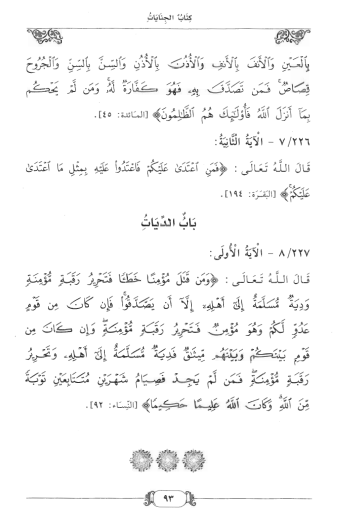 كِتَابُ الجِنَايَاتِ
بِالْعَيْنِ وَالْأَنفَ بِالْأَنفِ وَالْأُذُنَ بِالْأُذُنِ وَالسِّنَّ بِالسِّنِّ وَالْجُرُوحَ
قِصَاصٌ فَمَن تَصَدَّقَ بِهِ فَهُوَ كَفَّارَةٌ لَّهُ وَمَن لَّمْ يَحْكُم
بِمَا أَنزَلَ اللَّهُ فَأُوْلَٰئِكَ هُمُ الظَّالِمُونَ﴾ [المائدة: ٤٥].
٧/٢٢٦ - الآيَةُ الثَّانِيَةُ:
قَالَ اللَّـهُ تَعَـالَـى: ﴿فَمَنِ اعْتَدَىٰ عَلَيْكُمْ فَاعْتَدُوا عَلَيْهِ بِمِثْلِ مَا اعْتَدَىٰ
عَلَيْكُمْ﴾ [البَقَرَة: ١٩٤].
بَابُ الدِّيَاتِ
٨/٢٢٧ - الآيَةُ الأُولَى:
قَالَ اللَّـهُ تَعَـالَـى: ﴿وَمَن قَتَلَ مُؤْمِنًا خَطَـًٔا فَتَحْرِيرُ رَقَبَةٍ مُّؤْمِنَةٍ
وَدِيَةٌ مُّسَلَّمَةٌ إِلَىٰ أَهْلِهِ إِلَّا أَن يَصَّدَّقُوا فَإِن كَانَ مِن قَوْمٍ
عَدُوٍّ لَّكُمْ وَهُوَ مُؤْمِنٌ فَتَحْرِيرُ رَقَبَةٍ مُّؤْمِنَةٍ وَإِن كَانَ مِن
قَوْمٍ بَيْنَكُمْ وَبَيْنَهُم مِّيثَاقٌ فَدِيَةٌ مُّسَلَّمَةٌ إِلَىٰ أَهْلِهِ وَتَحْرِيرُ
رَقَبَةٍ مُّؤْمِنَةٍ فَمَن لَّمْ يَجِدْ فَصِيَامُ شَهْرَيْنِ مُتَتَابِعَيْنِ تَوْبَةً
مِّنَ اللَّهِ وَكَانَ اللَّهُ عَلِيمًا حَكِيمًا﴾ [النِّسَاء: ٩٢].
٩٣